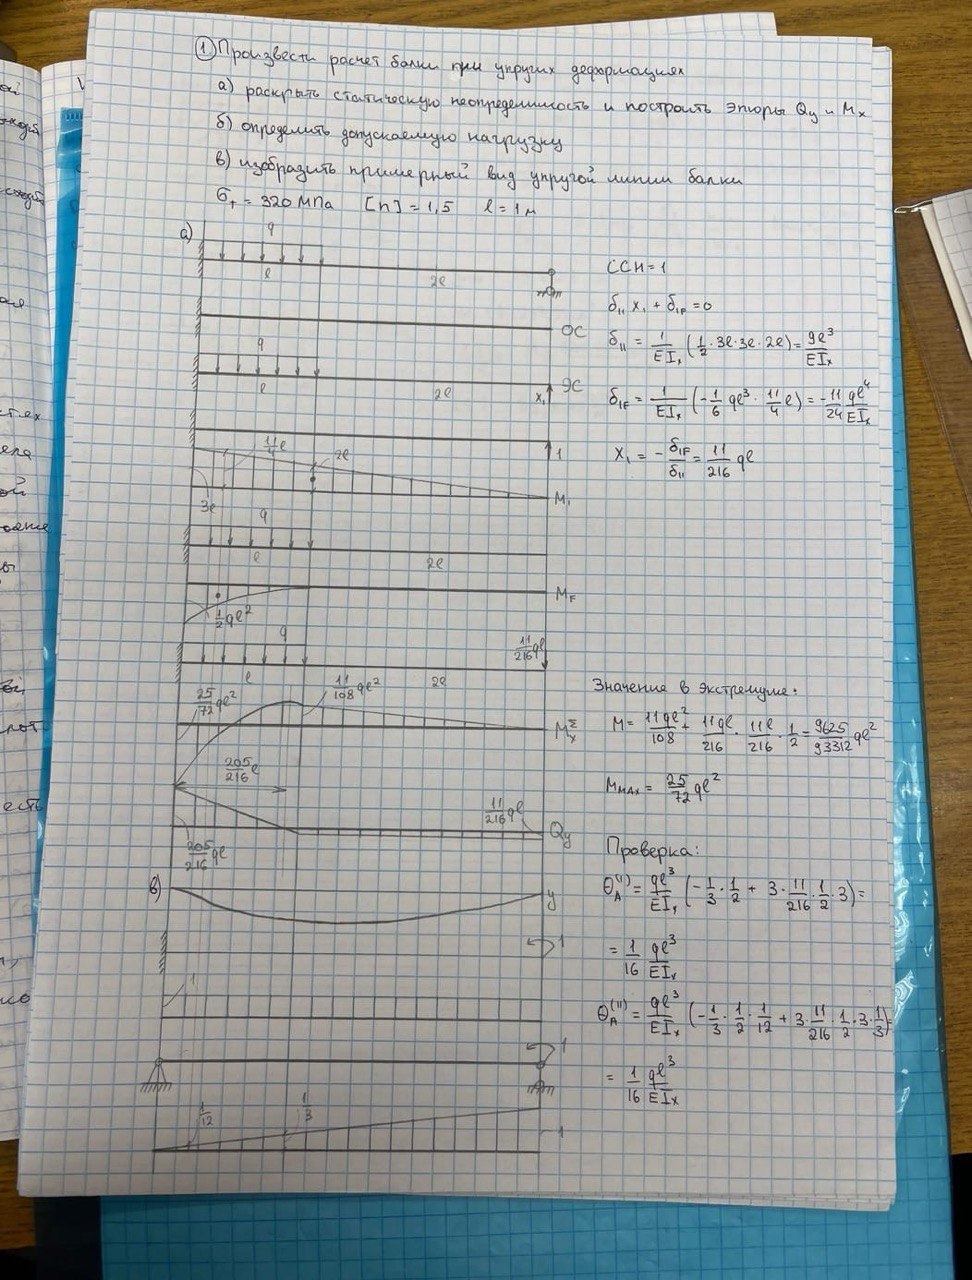 ① Произвести расчёт балки при упругих деформациях
а) раскрыть статическую неопределимость и построить эпюры Qy и Mx
б) определить допускаемую нагрузку
в) изобразить примерный вид упругой линии балки
σт = 320 МПа [n] = 1,5 l = 1 м
а)
q
l
2l
ОС
q
l
2l
X₁
ЭС
1
11/4 l
2l
3l
M₁
q
l
2l
1/2 ql²
M_F
q
l
2l
11/216 ql
25/72 ql²
11/108 ql²
Mx^Σ
205/216 l
11/216 ql
Qy
205/216 ql
в)
y
1
1
1
1/12
1/3
1
ССН = 1
δ₁₁ X₁ + δ₁F = 0
δ₁₁ = 1/EIx (1/2 · 3l · 3l · 2l) = 9l³/EIx
δ₁F = 1/EIx (-1/6 ql³ · 11/4 l) = -11/24 ql⁴/EIx
X₁ = - δ₁F/δ₁₁ = 11/216 ql
Значение в экстремуме:
M = 11ql²/108 + 11ql/216 · 11l/216 · 1/2 = 9625/93312 ql²
Mmax = 25/72 ql²
Проверка:
θ_A^(I) = ql³/EIx (-1/3 · 1/2 + 3 · 11/216 · 1/2 · 3) =
= 1/16 ql³/EIx
θ_A^(II) = ql³/EIx (-1/3 · 1/2 · 1/12 + 3 · 11/216 · 1/2 · 3 · 1/3) =
= 1/16 ql³/EIx